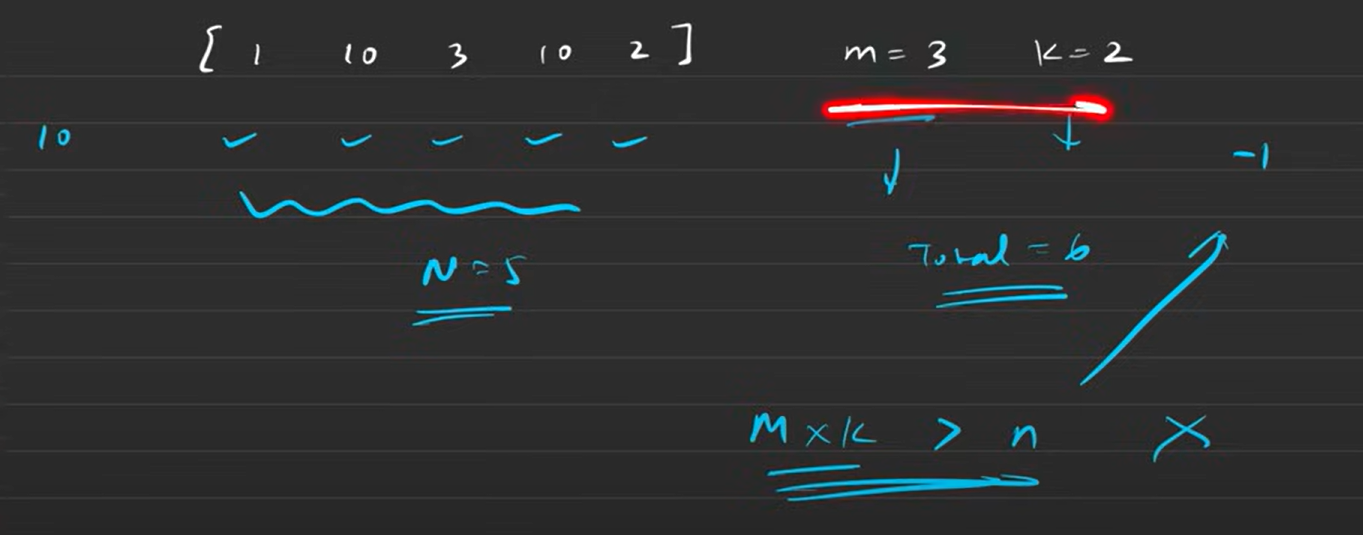 [ 1 10 3 10 2 ] m = 3 k = 2
10 ✓ ✓ ✓ ✓ ✓
-1
Total = 6
N = 5
M x K > n X